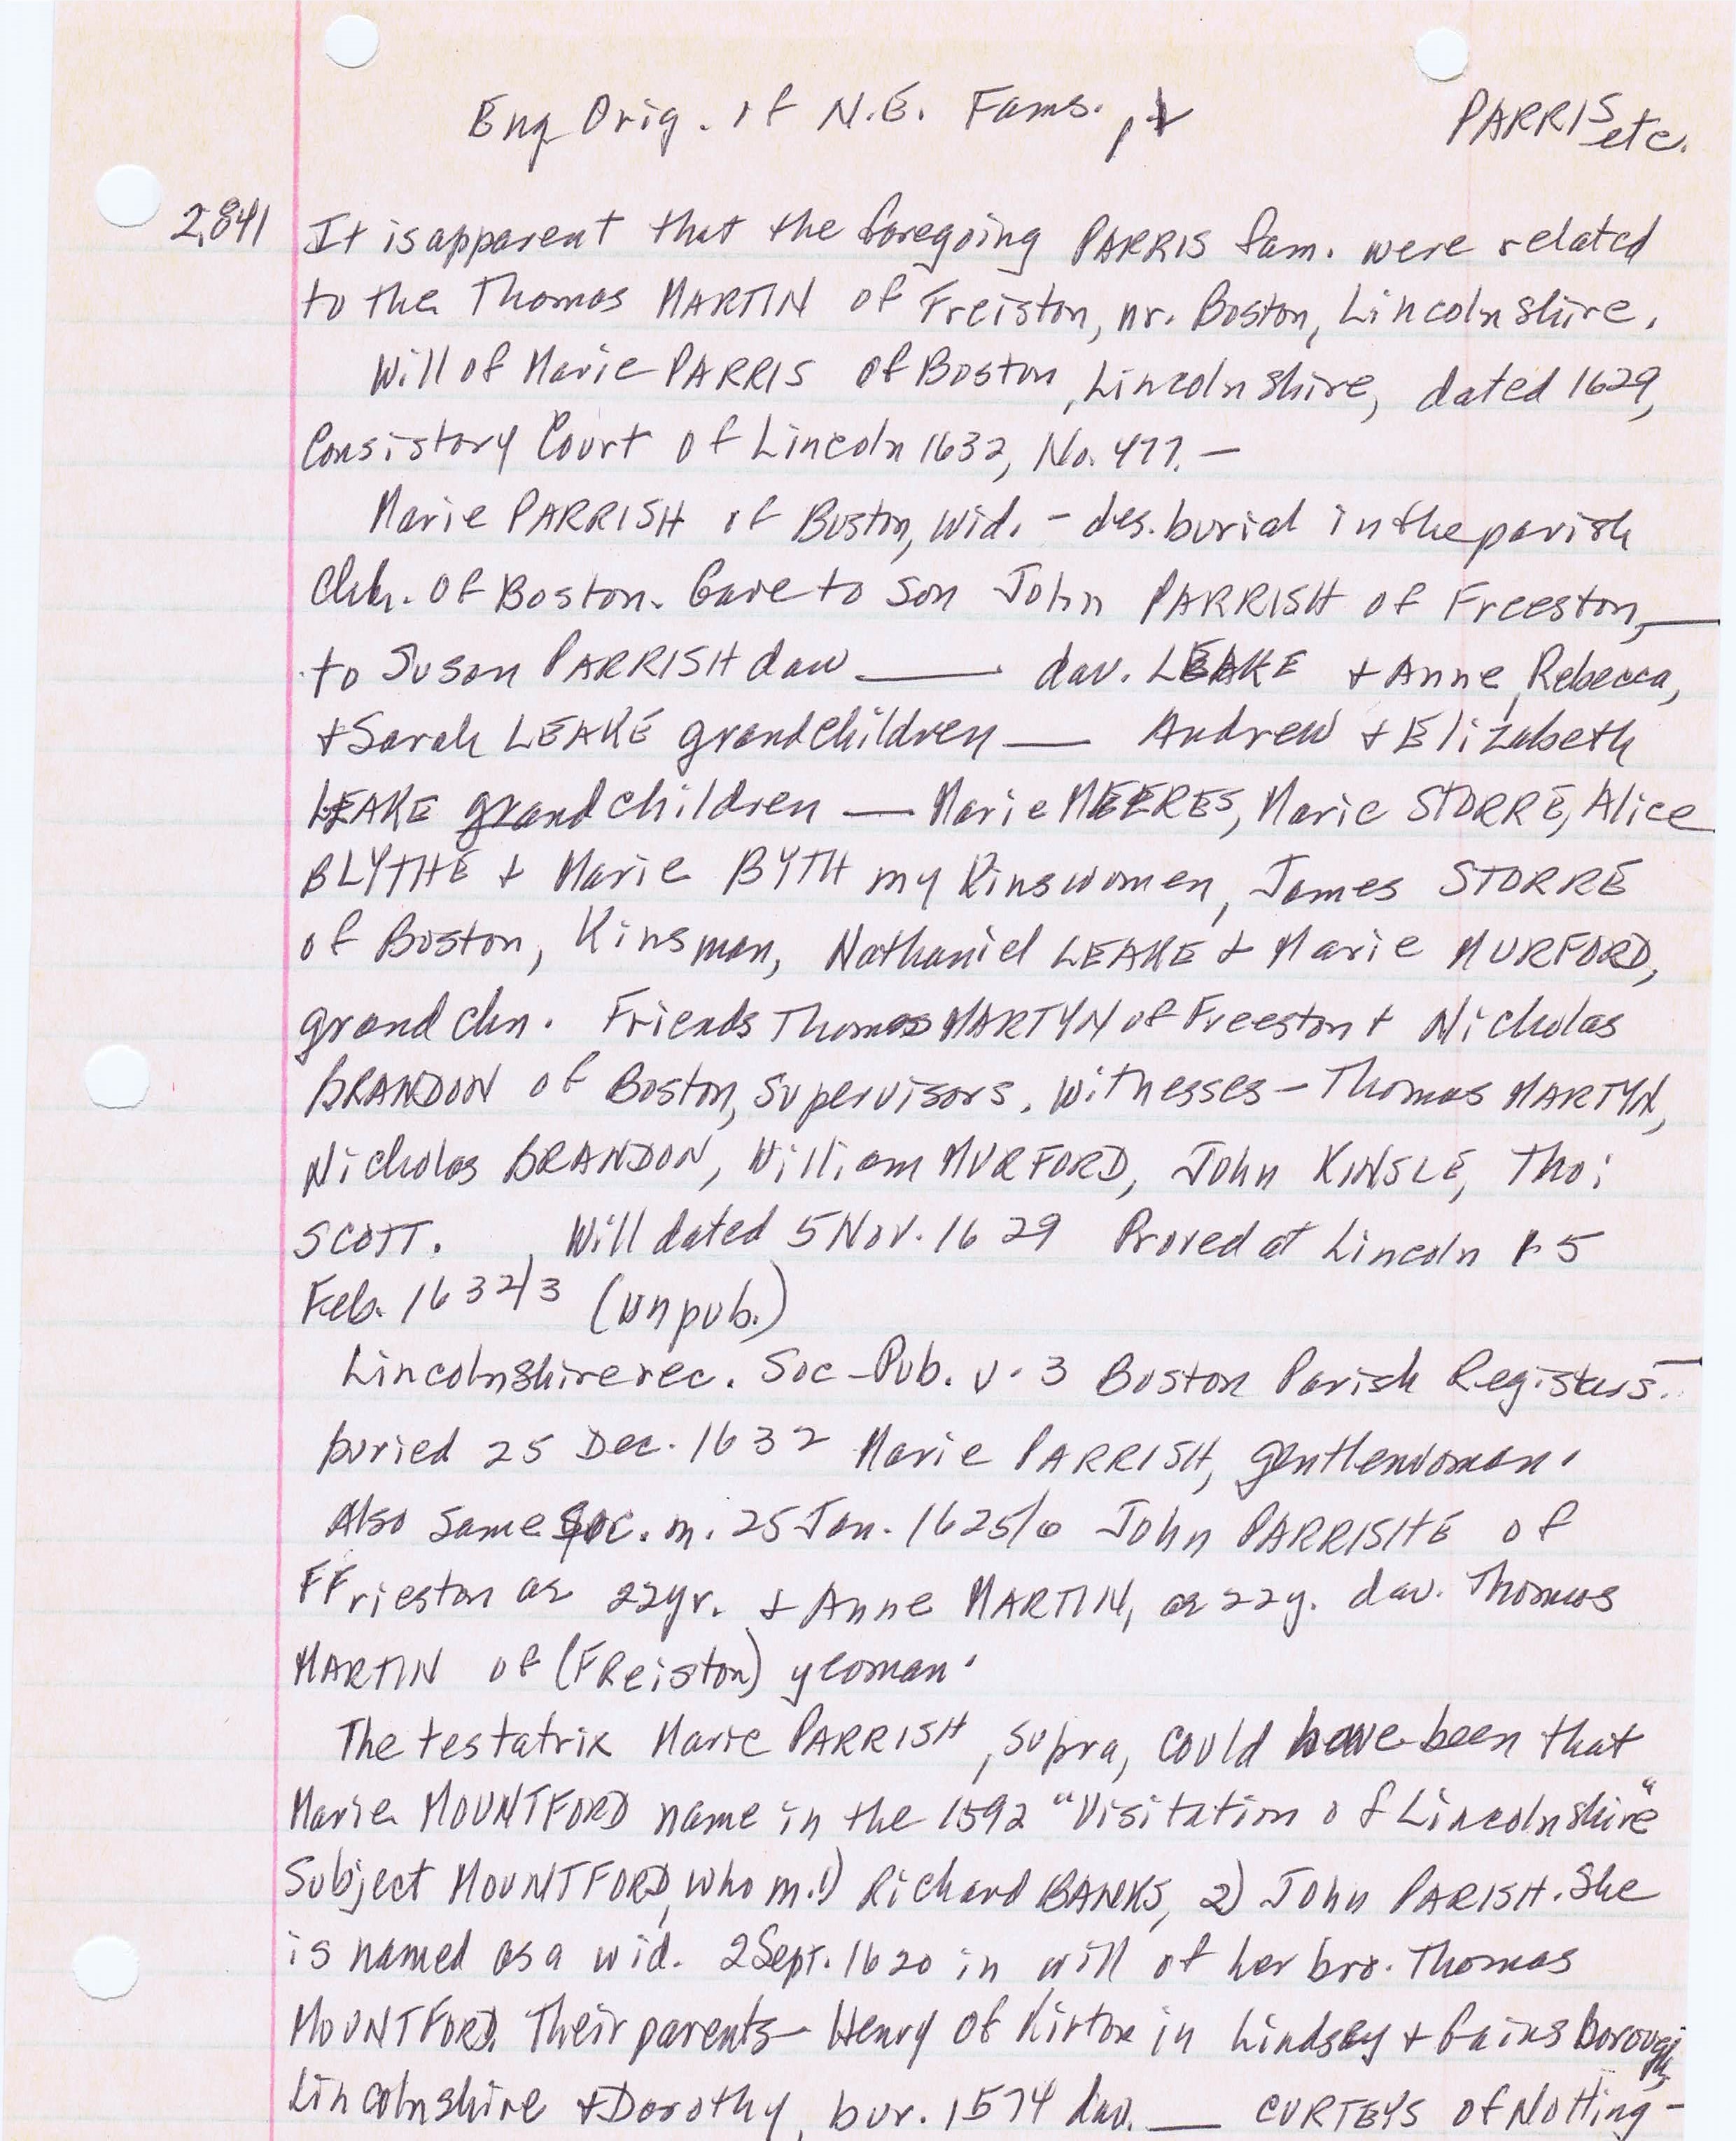 Eng Orig. of N.E. Fams.,
PARRIS etc.
2,841 It is apparent that the foregoing PARRIS fam. were related
to the Thomas MARTIN of Freiston, nr. Boston, Lincolnshire.
Will of Marie PARRIS of Boston, Lincolnshire, dated 1629,
Consistory Court of Lincoln 1632, No. 477. —
Marie PARRISH of Boston, wid. — des. burial in the parish
Chh. of Boston. Gave to son John PARRISH of Freeston, —
to Suson PARRISH daw — dau. LEAKE + Anne, Rebecca,
+ Sarah LEAKE grandchildren — Andrew + Elizabeth
LEAKE grandchildren — Marie MEERES, Marie STORRE, Alice
BLYTHE + Marie BYTH my Kinswomen, James STORRE
of Boston, Kinsman, Nathaniel LEAKE + Marie MURFORD,
grand chn. Friends Thomas MARTYN of Freeston + Nicholas
BRANDON of Boston, Supervisors. Witnesses — Thomas MARTYN,
Nicholas BRANDON, William MURFORD, John KINSLE, Tho:
SCOTT. Will dated 5 Nov. 1629 Proved at Lincoln 5
Feb. 1632/3 (unpub.)
Lincolnshire rec. Soc — Pub. v. 3 Boston Parish Registers. —
buried 25 Dec. 1632 Marie PARRISH, gentlewoman.
Also same Soc. m. 25 Jan. 1625/6 John PARRISHE of
FFrieston ae 22yr. + Anne MARTIN, ae 22y. dau. Thomas
MARTIN of (FReiston) yeoman.
The testatrix Marie PARRISH, supra, could have been that
Marie MOUNTFORD name in the 1592 "Visitation of Lincolnshire"
Subject MOUNTFORD, who m. 1) Richard BANKS, 2) John PARISH. She
is named as a wid. 2 Sept. 1620 in will of her bro. Thomas
MOUNTFORD. Their parents — Henry of Kirton in Lindsey + Gainsborough,
Lincolnshire + Dorothy, bur. 1574 dau. — CURTEYS of Notting-